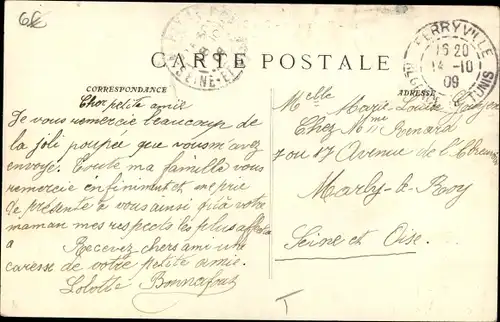 CARTE POSTALE
FERRYVILLE
16 20
14 -10
09
TUNIS
SEINE-E
CORRESPONDANCE
ADRESSE
Cher petite amie
Je vous remercie beaucoup de
la joli poupee que vous m'avez
envoye. Toute ma famille vous
remercie enfiniment et me prie
de présente a vous ainsi qu'à votre
maman mes respects les plus
a
Recevez chers ami une
caresse de votre petite amie.
Lolotte Bonnafous
Melle Marie Louise
Chez Mme Renard
7 ou 17 Avenue de l'
Marly-le-Roy
Seine et Oise.
T